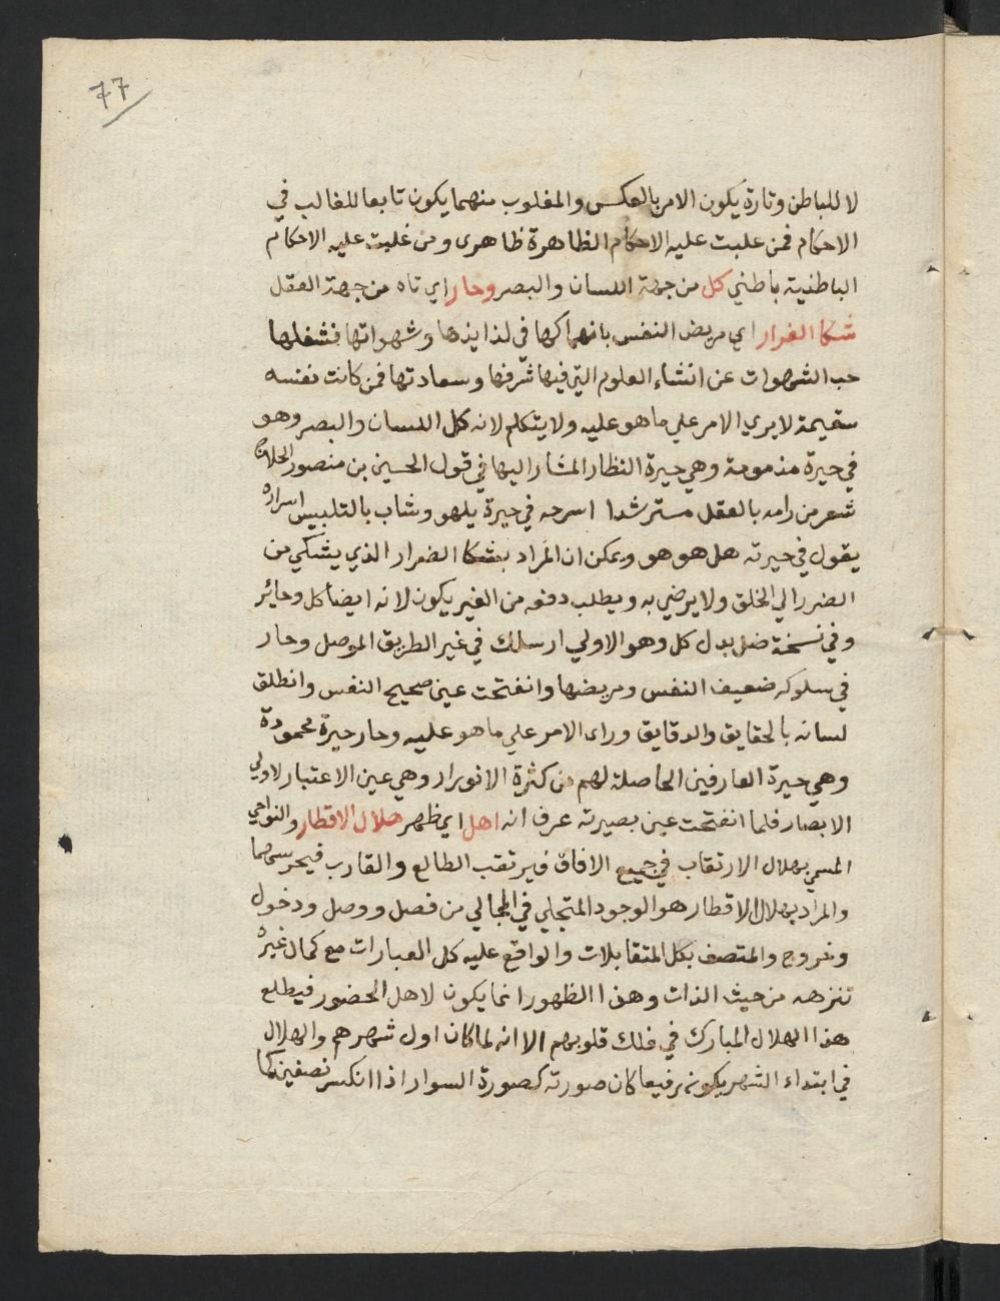 77
لا للباطن وتارة يكون الامر بالعكس والمغلوب منهما يكون تابعا للغالب في
الاحكام فمن غلبت عليه الاحكام الظاهرة ظاهرى ومن غلبت عليه الاحكام
الباطنية باطني كل من جهة اللسان والبصر وحار اي تاه من جهة العقل
شكا الضرار اي مريض النفس بانهماكها في لذايذها وشهواتها فشغلها
حب الشهوات عن انشاء العلوم التي فيها شرفها وسعادتها فمن كانت نفسه
سقيمة لا يري الامر علي ما هو عليه ولا يتكلم لانه كل اللسان والبصر وهو
في حيرة مذمومة وهي حيرة النظار المشار اليها في قول الحسين بن منصور الحلاج
شعر من رامه بالعقل مسترشدا اسرحه في حيرة يلهو وشاب بالتلبيس اسراره
يقول في حيرته هل هو هو ويمكن ان المراد بشكا الضرار الذي يشتكي من
الضرر الي الخلق ولا يرضي به ويطلب دفعه من الغير يكون لانه ايضا كل وحاير
وفي نسخة ضل بدل كل وهو الاولي ارسلك في غير الطريق الموصل وحار
في سلوكه ضعيف النفس ومريضها وانفتحت عين صحيح النفس وانطلق
لسانه بالحقايق والدقايق وراى الامر علي ما هو عليه وحار حيرة محمودة
وهي حيرة العارفين الحاصلة لهم من كثرة الانوار وهي عين الاعتبار لاولي
الابصار فلما انفتحت عين بصيرته عرف انه اهل اي ظهر هلال الاقطار والنواحي
المسمي بهلال الارتقاب في جميع الافاق فيرتقب الطالع والقارب فيحرسهما
والمراد بهلال الاقطار هو الوجود المتجلي في المجالي من فصل ووصل ودخول
وخروج والمتصف بكل المتقابلات والواقع عليه كل العبارات مع كمال غيره
تنزهه من حيث الذات وهذا الظهور انما يكون لاهل الحضور فيطلع
هذا الهلال المبارك في فلك قلوبهم الا انه لما كان اول شهرهم والهلال
في ابتداء الشهر يكون رفيعا كان صورته كصورة السوار اذا انكسر نصفين كما